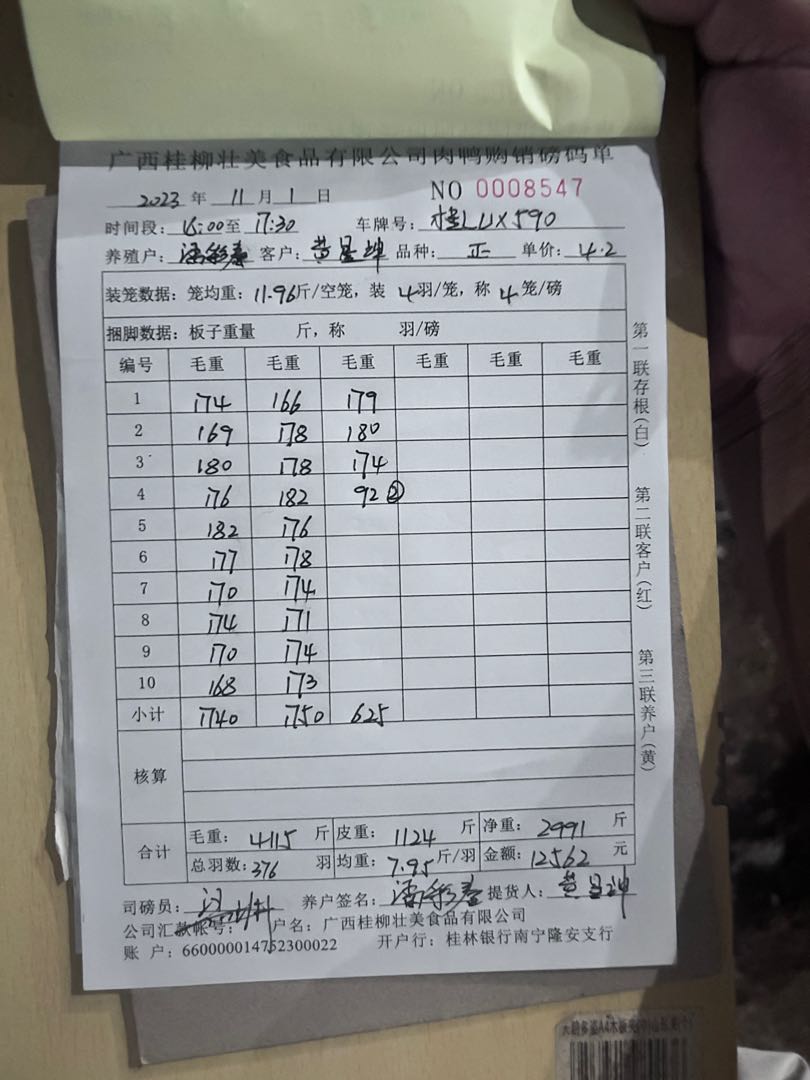 广西桂柳壮美食品有限公司肉鸭购销磅码单
2023 年 11 月 1 日 NO 0008547
时间段: 15:00 至 17:30 车牌号: 桂LUX590
养殖户: 客户: 黄昱坤 品种: 正 单价: 4.2
装笼数据: 笼均重: 11.96 斤/空笼, 装 4 羽/笼, 称 4 笼/磅
捆脚数据: 板子重量 斤, 称 羽/磅
编号 毛重 毛重 毛重 毛重 毛重 毛重
1 174 166 179
2 169 178 180
3 180 178 174
4 176 182 92 ②
5 182 176
6 177 178
7 170 174
8 174 171
9 170 174
10 168 173
小计 1740 1750 625
核算
合计 毛重: 4115 斤 皮重: 1124 斤 净重: 2991 斤
总羽数: 376 羽 均重: 7.95 斤/羽 金额: 12562 元
司磅员: 养户签名: 提货人: 黄昱坤
公司汇款帐号: 户名: 广西桂柳壮美食品有限公司
账 户: 660000014752300022 开户行: 桂林银行南宁隆安支行
第一联存根(白) 第二联客户(红) 第三联养户(黄)